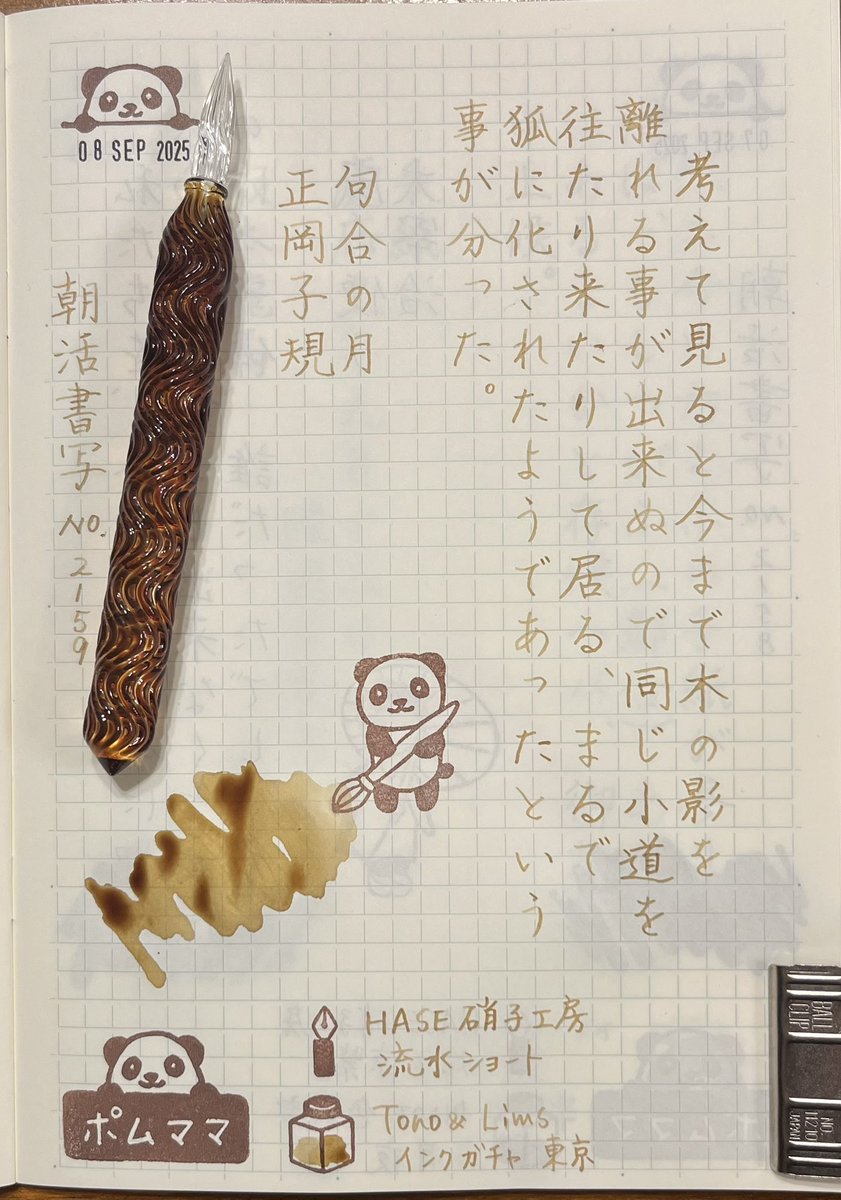 考えて見ると今まで木の影を
離れる事が出来ぬので同じ小道を
往たり来たりして居る、まるで
狐に化されたようであったという
事が分った。
句合の月
正岡子規
08 SEP 2025
朝活書写 NO.2159
HASE硝子工房
流水ショート
Tono & Lims
インクガチャ 東京
ポムママ
BALL CLIP
NO. 11210
JAPAN